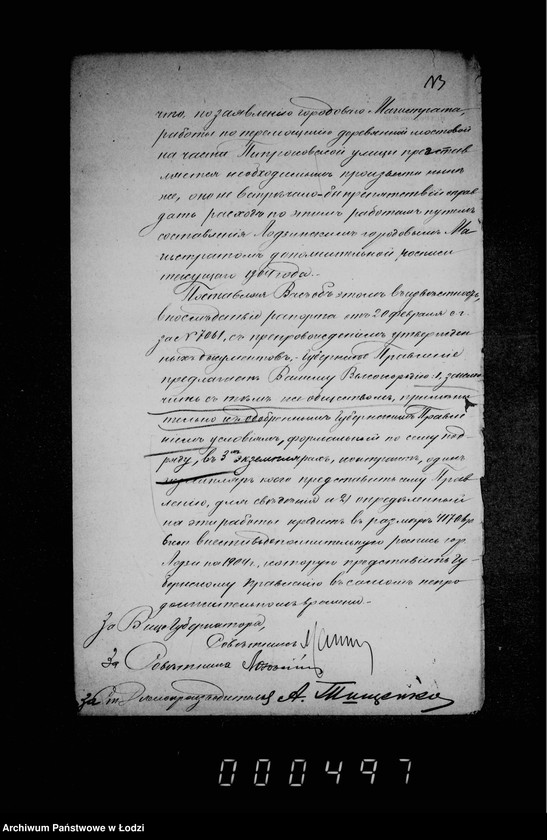 что, по заявлению городоваго Магистрата,
работы по перемощению деревянной мостовой
на части Петроковской улицы представ
ляется необходимым произвести ныне
же, оно не встречало-бы препятствий оправ
дать расход по этим работам путем
составления Лодзинским городовым Ма-
гистратом дополнительной росписи
текущаго 1904 года.-
Поставляя Вас об этом в известность,
в последствие рапорта от 20 февраля с.г.
за с. № 7061, с препровождением утвержден
ных документов,- Губернское Правление
предлагает Вашему Высокородию: 1, заклю
чить с тем же обществом, примени
тельно к одобренным Губернским Правле
нием условиям, формальный по сему под-
ряду, в 3х экземплярах, контракт, один
экземпляр коего представить сему Прав
лению, для сведения и 2) определенный
на эти работы кредит в размере
внести в дополнительную роспись гор.
Лодзи по 1904 г., которую представить Гу-
бернскому Правлению в самом непро
должительном времени.-
За Вице Губернатора,
Советник
За Советника
За Делопроизводителя А. Тищенко
000497
Archiwum Państwowe w Łodzi